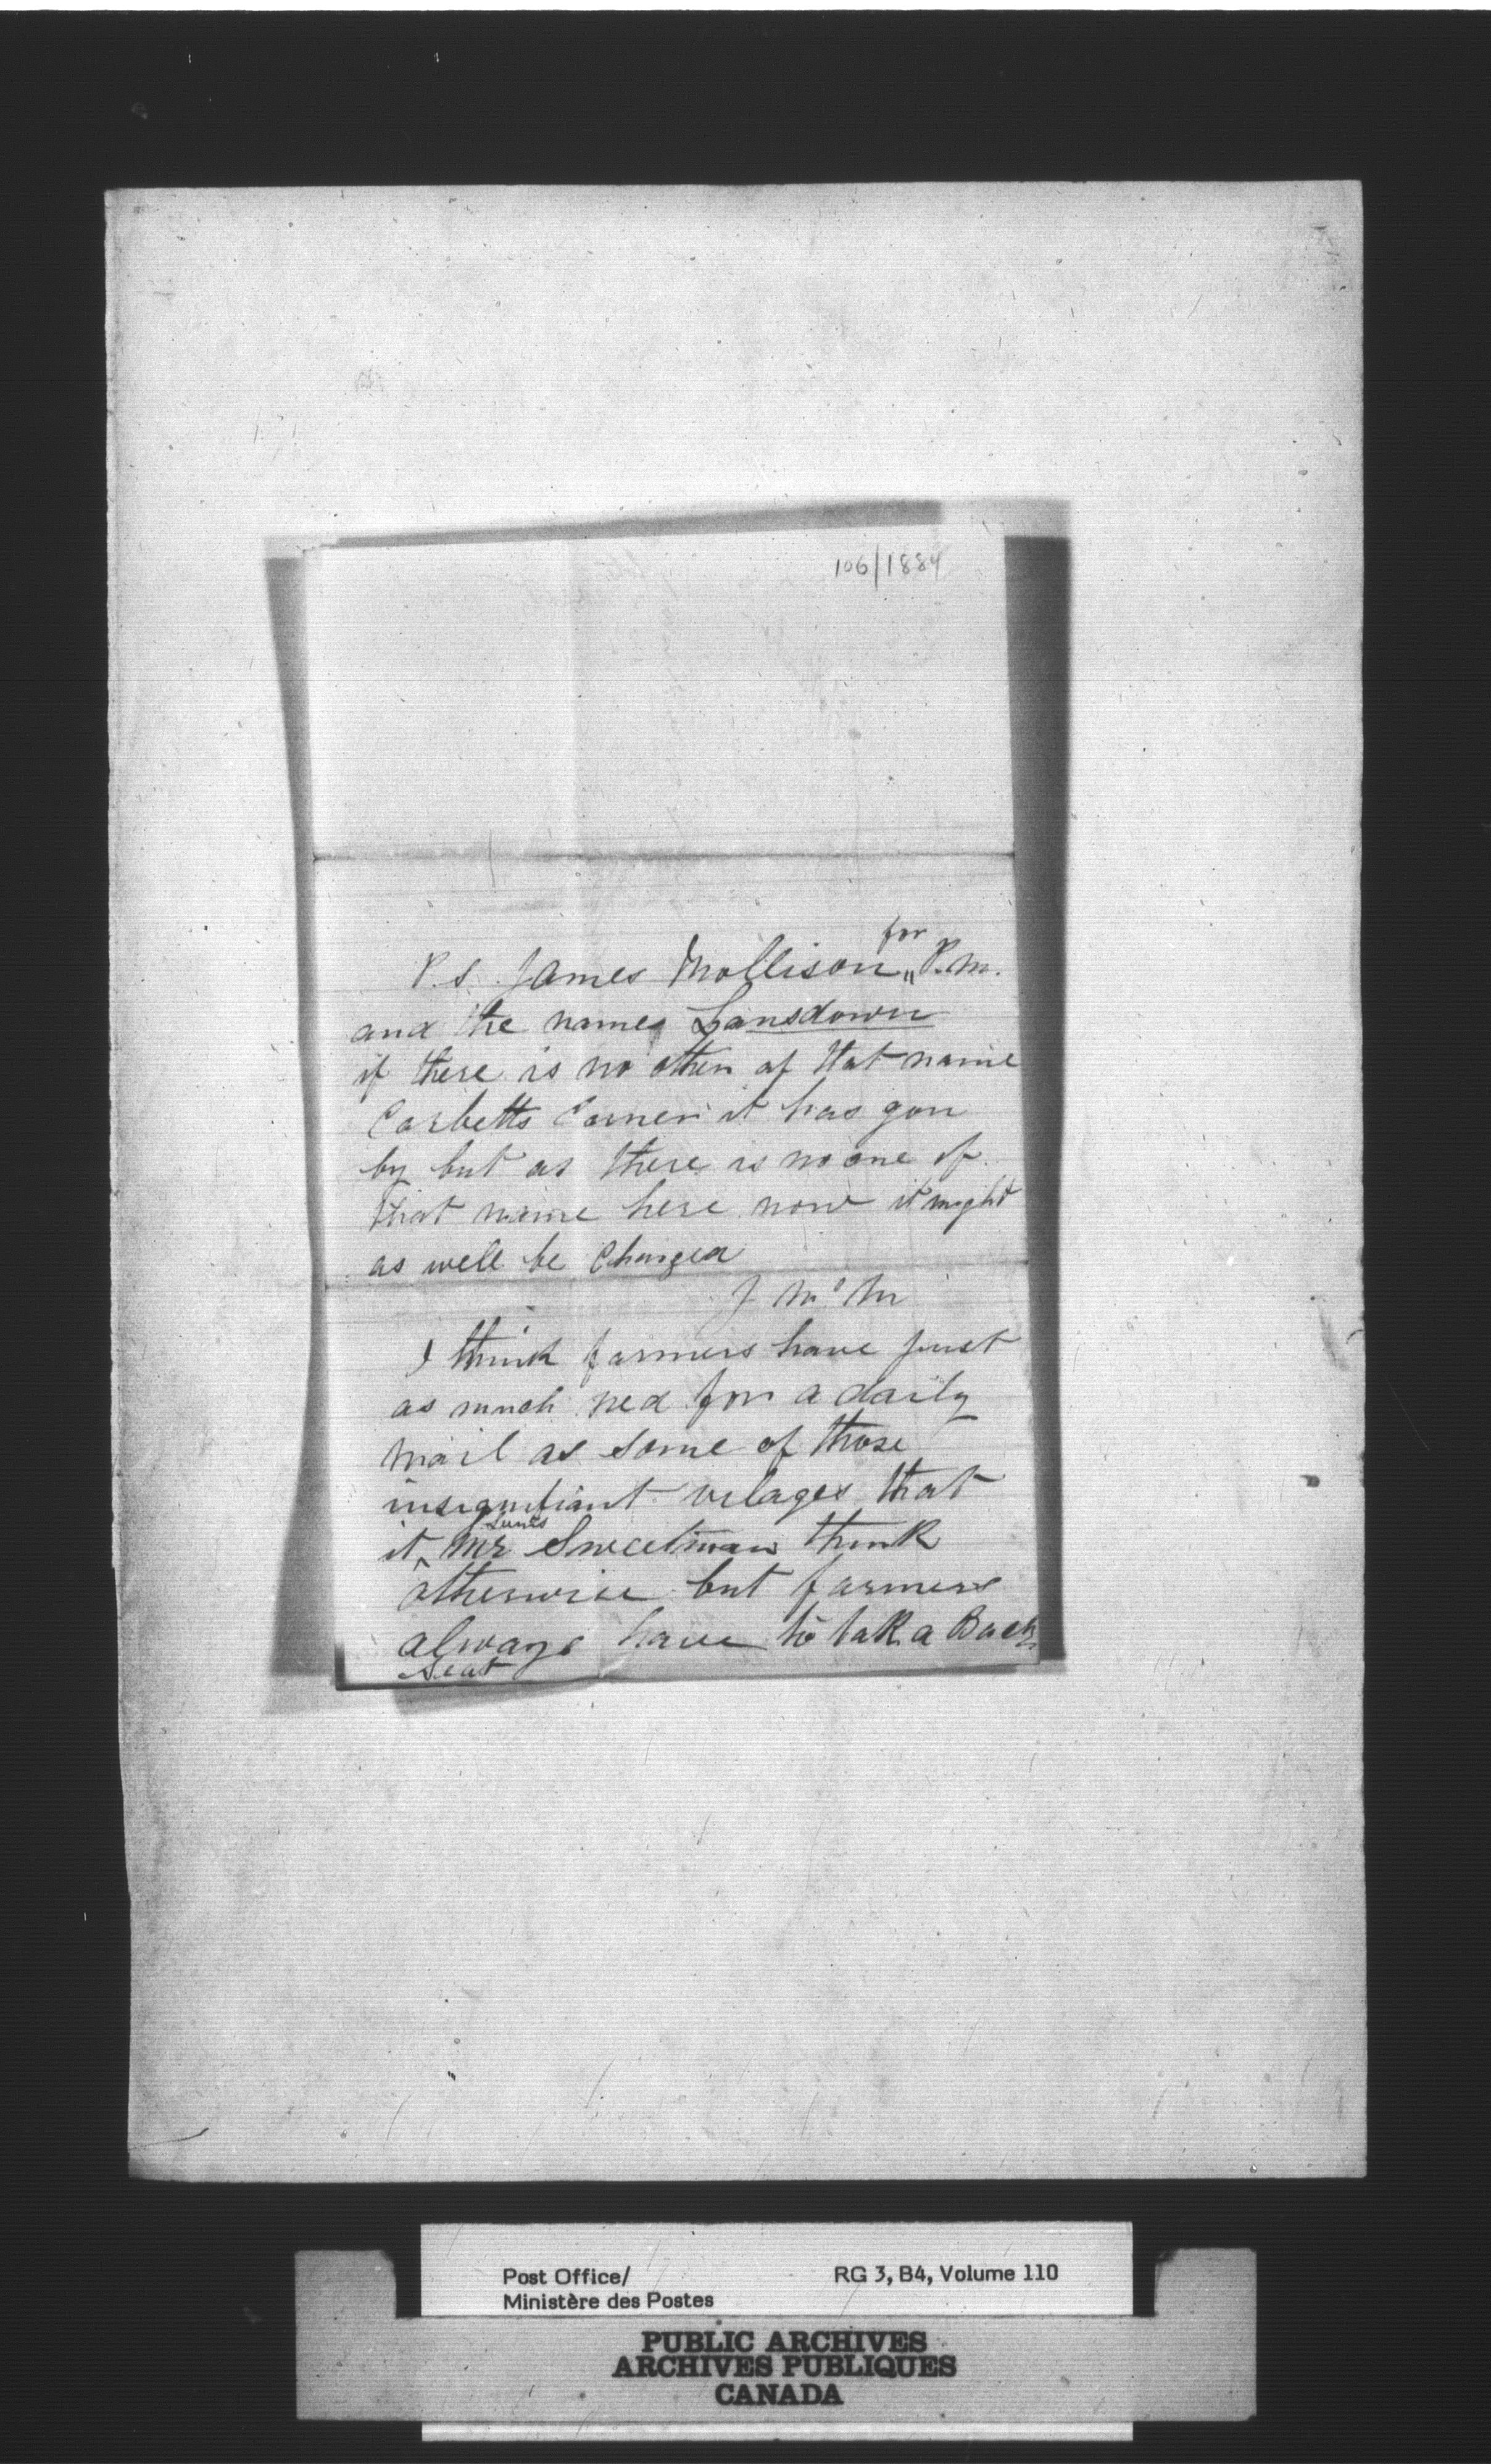 106/1884
for
P.S. James Mollison " P.M.
and the names Lansdown
if there is no other of that name
Corbetts Corner it has gon
by but as there is no one of
that name here now it might
as well be Changed
J Mc M
I think farmers have just
as much ned for a daily
mail as some of those
insignifiant vilages that
it Mr Sweetman think
otherwise but farmers
always have to tak a Back
Seat
Post Office/ RG 3, B4, Volume 110
Ministère des Postes
PUBLIC ARCHIVES
ARCHIVES PUBLIQUES
CANADA